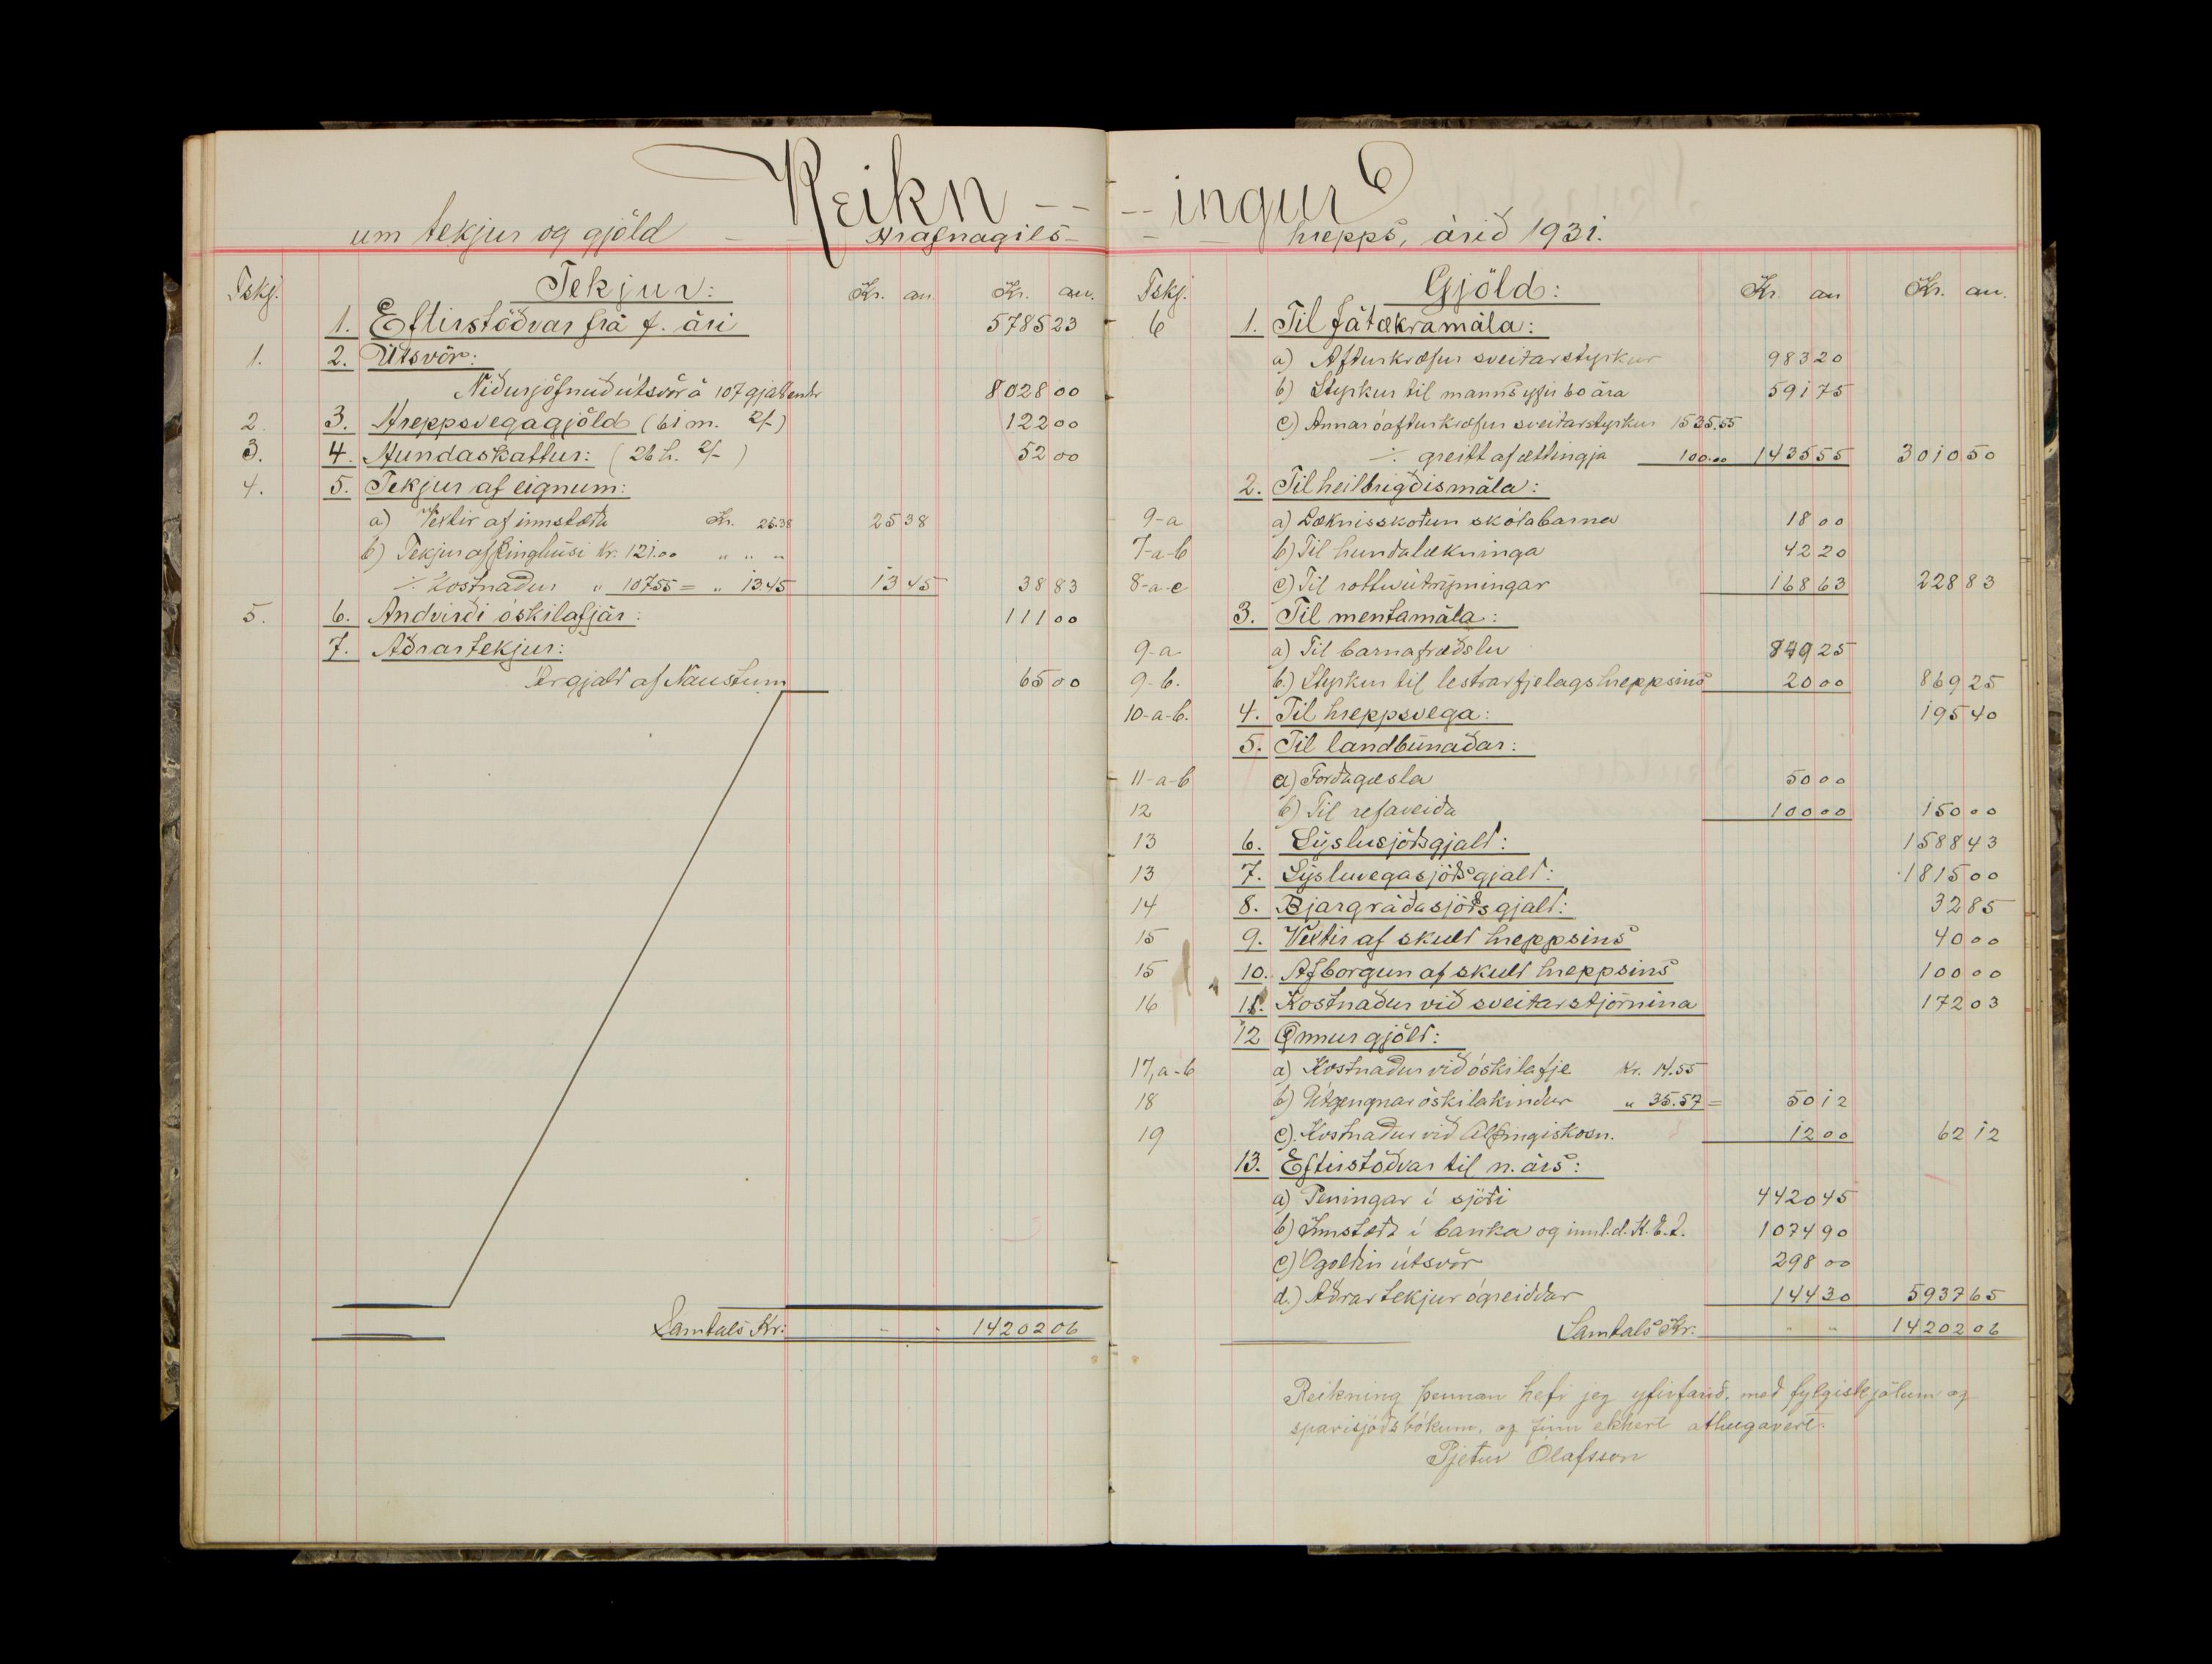 Reikn - - - - ingur
um tekjur og gjöld - - Hrafnagils- - - hrepps, árið 1931.
Fskj. Tekjur: Kr. au. Kr. au.
1. Eftirstöðvar frá f. ári 5785 23
1. 2. Útsvör:
Niðurjöfnuð útsvör á 107 gjaldendr 8028 00
2. 3. Hreppsvegagjöld (61 m. 2/-) 122 00
3. 4. Hundaskattur: (26 h. 2/-) 52 00
4. 5. Tekjur af eignum:
a) Vextir af innstæðu Kr. 25.38 25 38
b) Tekjur af þinghúsi Kr. 121.00 " " "
÷ Kostnaður " 107.55 = " 13.45 13 45 38 83
5. 6. Andvirði óskilafjár: 111 00
7. Aðrar tekjur:
Ærgjald af Naustum 65 00
Samtals Kr: - - 14202 06
Fskj. Gjöld: Kr. au Kr. au.
6 1. Til fátækramála:
a) Afturkræfur sveitarstyrkur 983 20
b) Styrkur til manns yfir 60 ára 591 75
c) Annar óafturkræfur sveitarstyrkur 1535.55
÷ greitt af ættingja 100.00 1435 55 3010 50
2. Til heilbrigðismála:
9-a a) Læknisskoðun skólabarna 18 00
7-a-b b) Til hundalækninga 42 20
8-a-c c) Til rottuútrýmingar 168 63 228 83
3. Til mentamála:
9-a a) Til barnafræðslu 849 25
9-b. b.) Styrkur til lestrarfjelags hreppsins 20 00 869 25
10-a-b. 4. Til hreppsvega: 195 40
5. Til landbúnaðar:
11-a-b a) Forðagæsla 50 00
12 b) Til refaveiða 100 00 150 00
13 6. Sýslusjóðsgjald: 1588 43
13 7. Sýsluvegasjóðsgjald: 1815 00
14 8. Bjargráðasjóðsgjald: 32 85
15 9. Vextir af skuld hreppsins 40 00
15 10. Afborgun af skuld hreppsins 100 00
16 11. Kostnaður við sveitarstjórnina 172 03
12 Önnur gjöld:
17, a-b a) Kostnaður við óskilafje Kr. 14.55
18 b) Útgengnar óskilakindur " 35.57 = 50 12
19 c). Kostnaður við Alþingiskosn. 12 00 62 12
13. Eftirstöðvar til n. árs:
a) Peningar í sjóði 4420 45
b) Innstæða í banka og innl.d. K.E.A. 1074 90
c) Ógoldin útsvör 298 00
d.) Aðrar tekjur ógreiddar 144 30 5937 65
Samtals Kr: - - 14202 06
Reikning þennan hefi jeg yfirfarið, með fylgiskjölum og
sparisjóðsbókum, og finn ekkert athugavert.
Pjetur Ólafsson